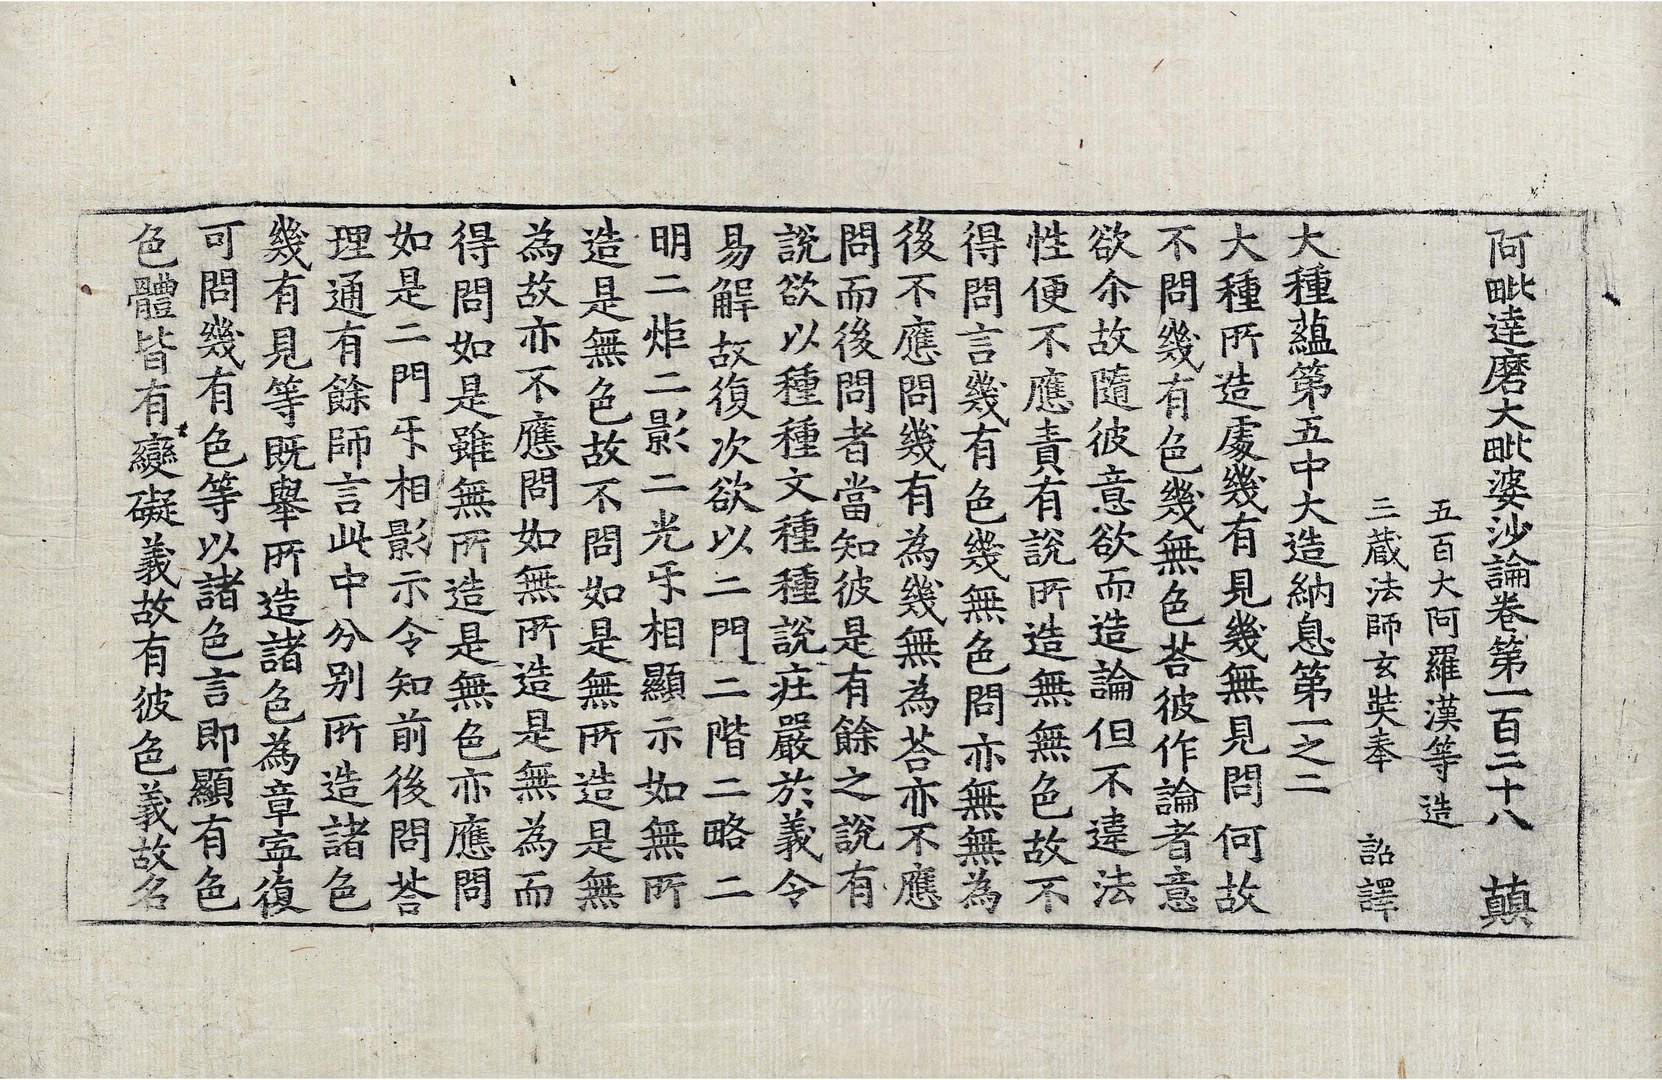 阿毗達磨大毗婆沙論卷第一百二十八　顛
五百大阿羅漢等造
三蔵法師玄奘奉　詔譯
大種蘊第五中大造納息第一之二
大種所造處幾有見幾無見問何故
不問幾有色幾無色荅彼作論者意
欲尒故隨彼意欲而造論但不違法
性便不應責有說所造無無色故不
得問言幾有色幾無色問亦無無為
後不應問幾有為幾無為荅亦不應
問而後問者當知彼是有餘之說有
說欲以種種文種種說莊嚴於義令
易解故復次欲以二門二階二略二
明二炬二影二光乎相顯示如無所
造是無色故不問如是無所造是無
為故亦不應問如無所造是無為而
得問如是雖無所造是無色亦應問
如是二門乎相影示令知前後問荅
理通有餘師言此中分別所造諸色
幾有見等既舉所造諸色為章寧復
可問幾有色等以諸色言即顯有色
色體皆有變礙義故有彼色義故名